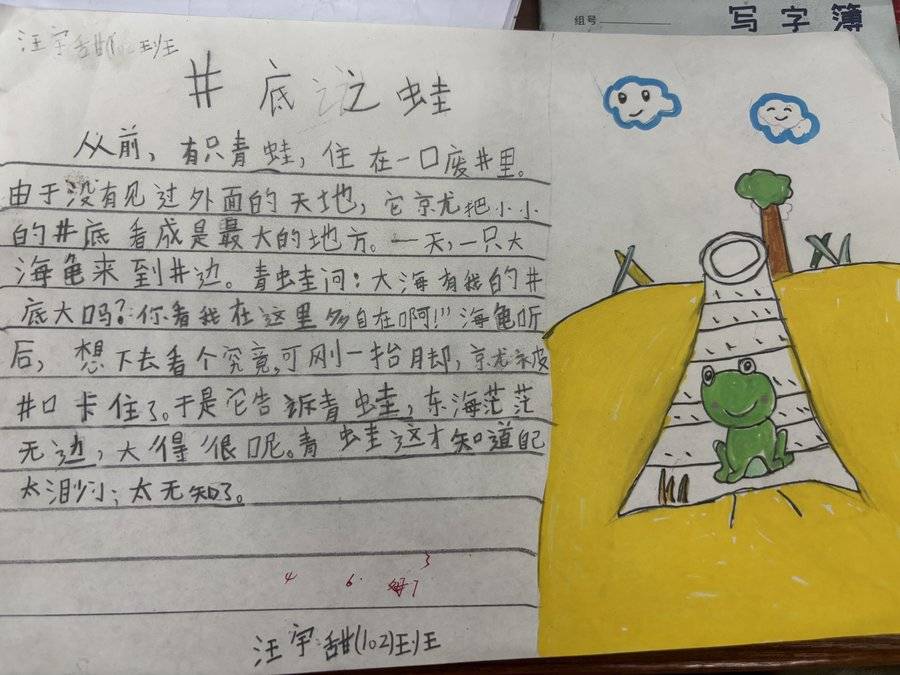 组号
写字簿
汪宇甜 班
井底之蛙
从前，有只青蛙，住在一口废井里。
由于没有见过外面的天地，它就把小小
的井底看成是最大的地方。一天，一只大
海龟来到井边。青蛙问：大海有我的井
底大吗？你看我在这里多自在啊！"海龟听
后，想下去看个究竟，可刚一抬脚，就被
井口卡住了。于是它告诉青蛙，东海茫茫
无边，大得很呢。青蛙这才知道自己
太渺小；太无知了。
4 6. 3
汪宇甜(102)班